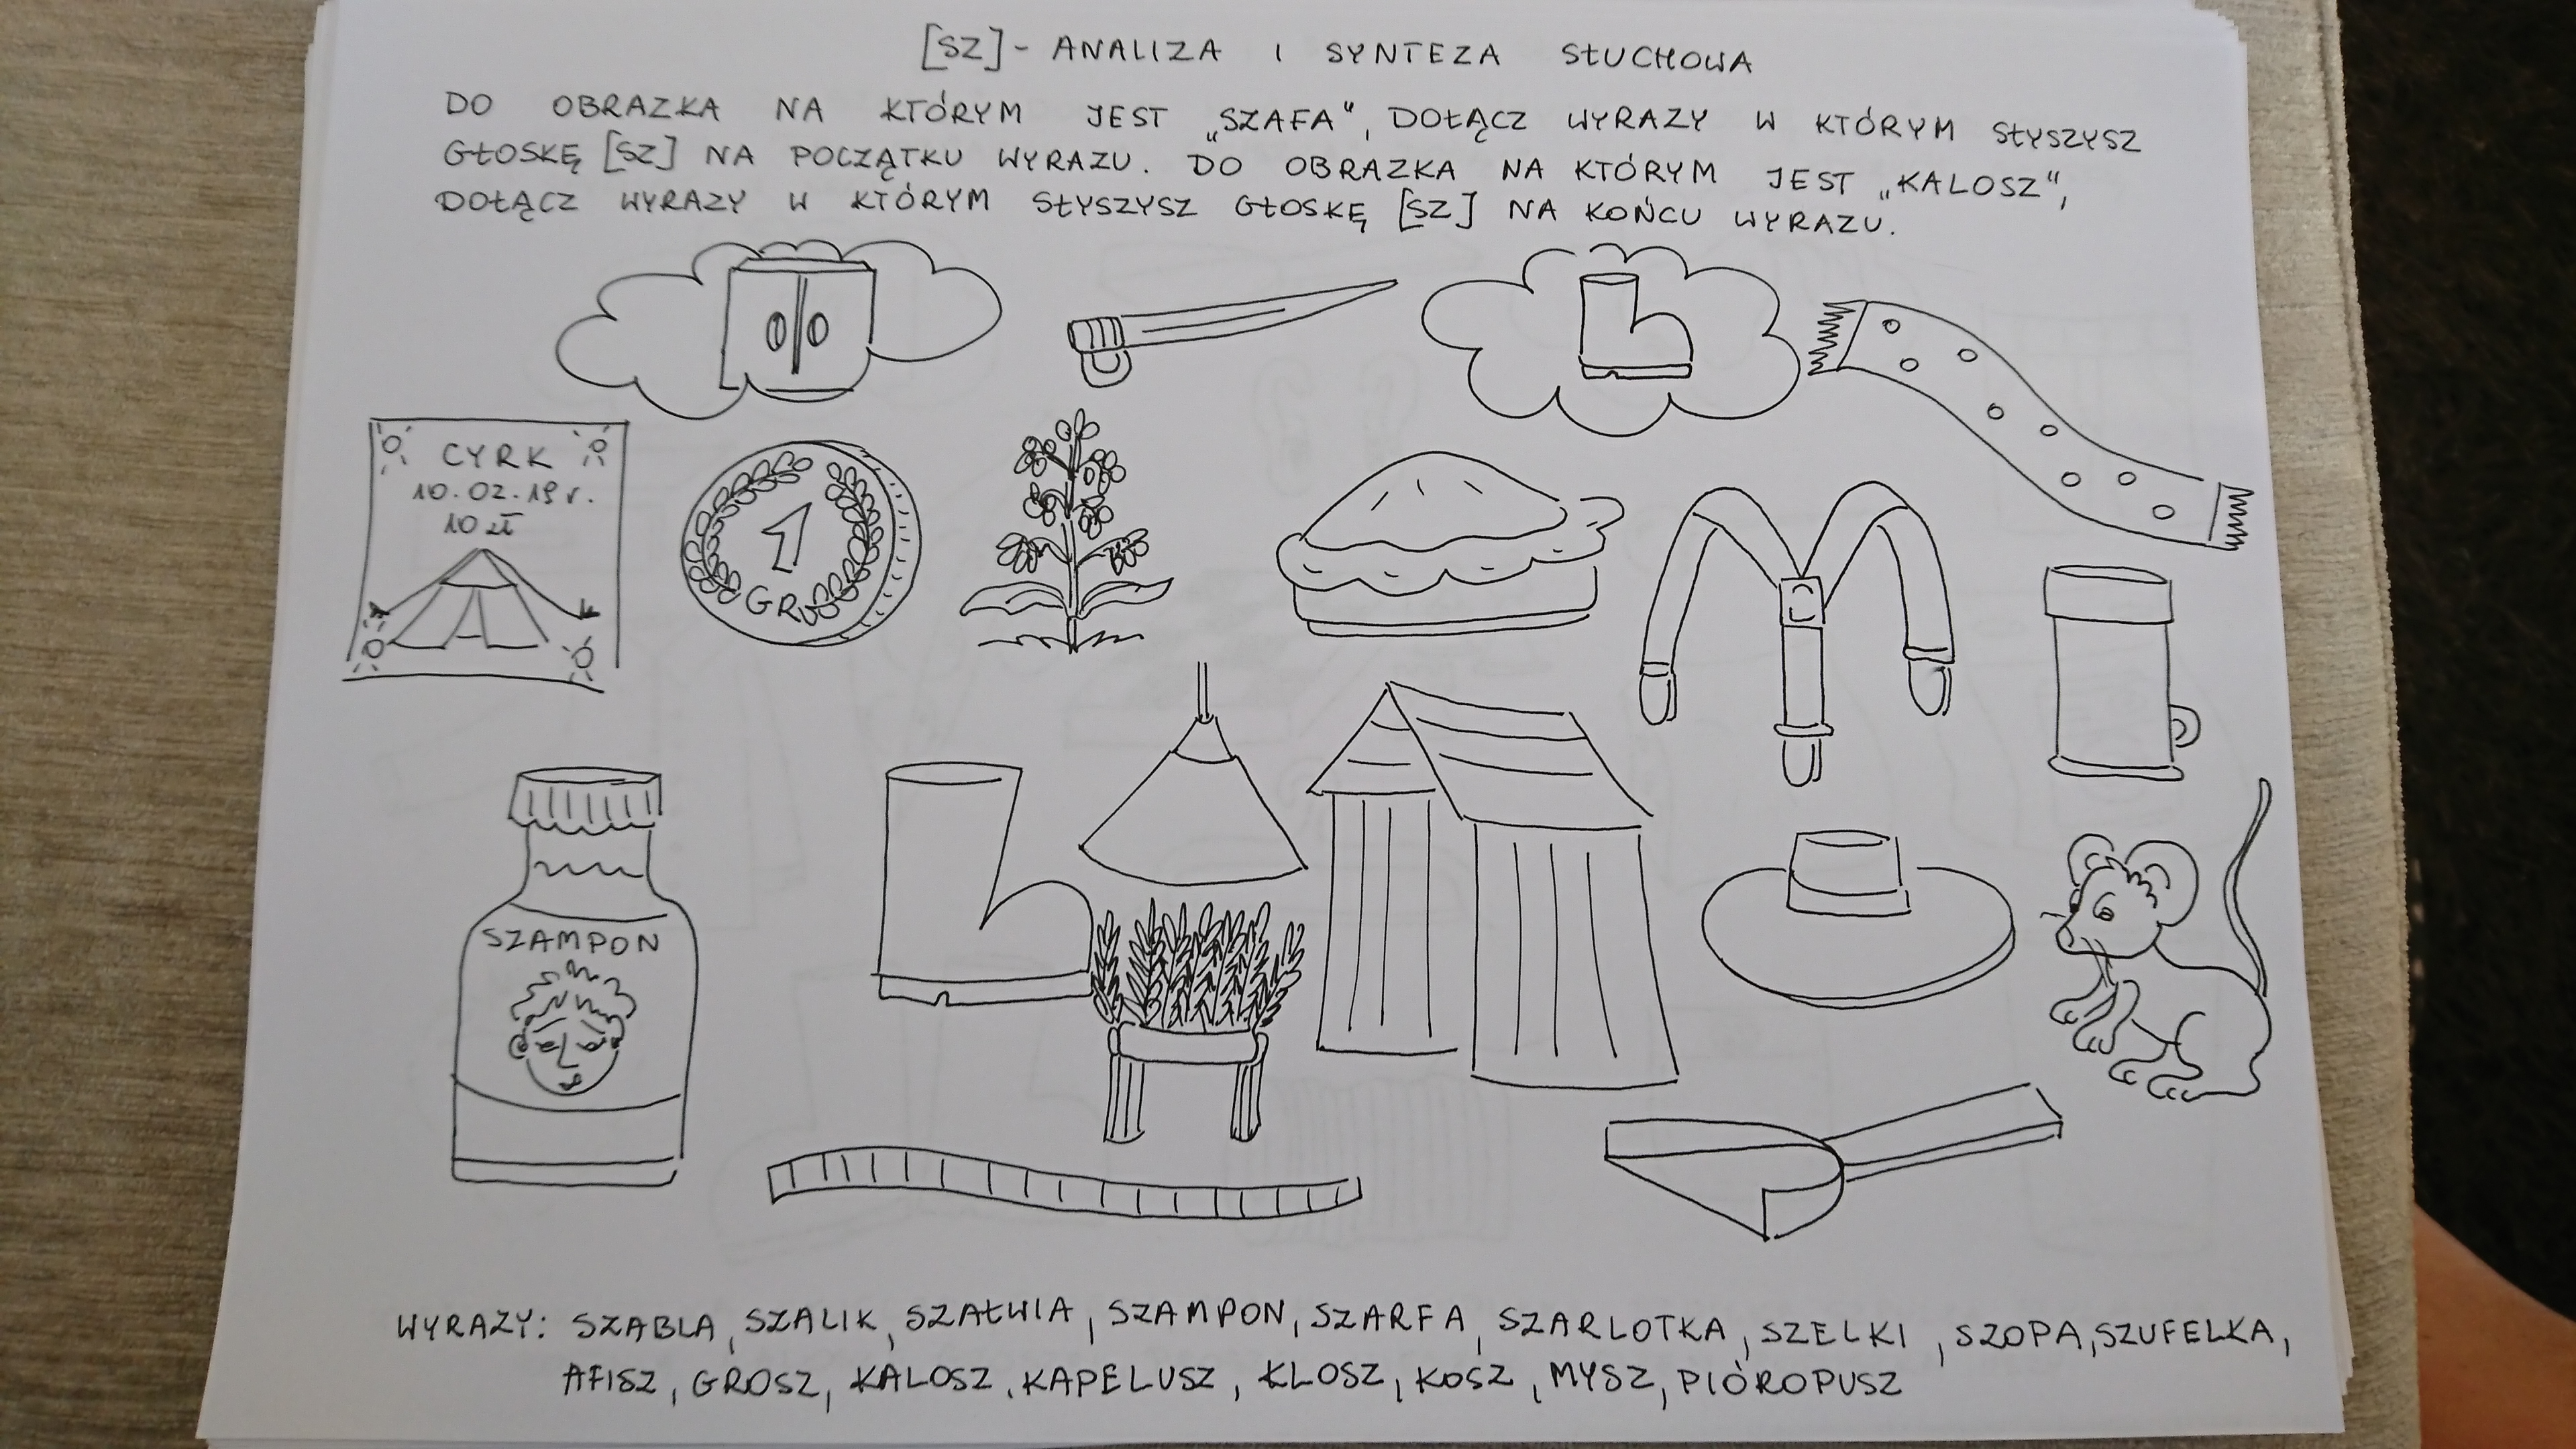 [SZ] - ANALIZA I SYNTEZA SŁUCHOWA
DO OBRAZKA NA KTÓRYM JEST „SZAFA", DOŁĄCZ WYRAZY W KTÓRYM SŁYSZYSZ
GŁOSKĘ [SZ] NA POCZĄTKU WYRAZU. DO OBRAZKA NA KTÓRYM JEST „KALOSZ",
DOŁĄCZ WYRAZY W KTÓRYM SŁYSZYSZ GŁOSKĘ [SZ] NA KOŃCU WYRAZU.
CYRK
10.02.19 r.
10 zł
1
GR
SZAMPON
WYRAZY: SZABLA, SZALIK, SZAŁWIA, SZAMPON, SZARFA, SZARLOTKA, SZELKI, SZOPA, SZUFELKA,
AFISZ, GROSZ, KALOSZ, KAPELUSZ, KLOSZ, KOSZ, MYSZ, PIÓROPUSZ